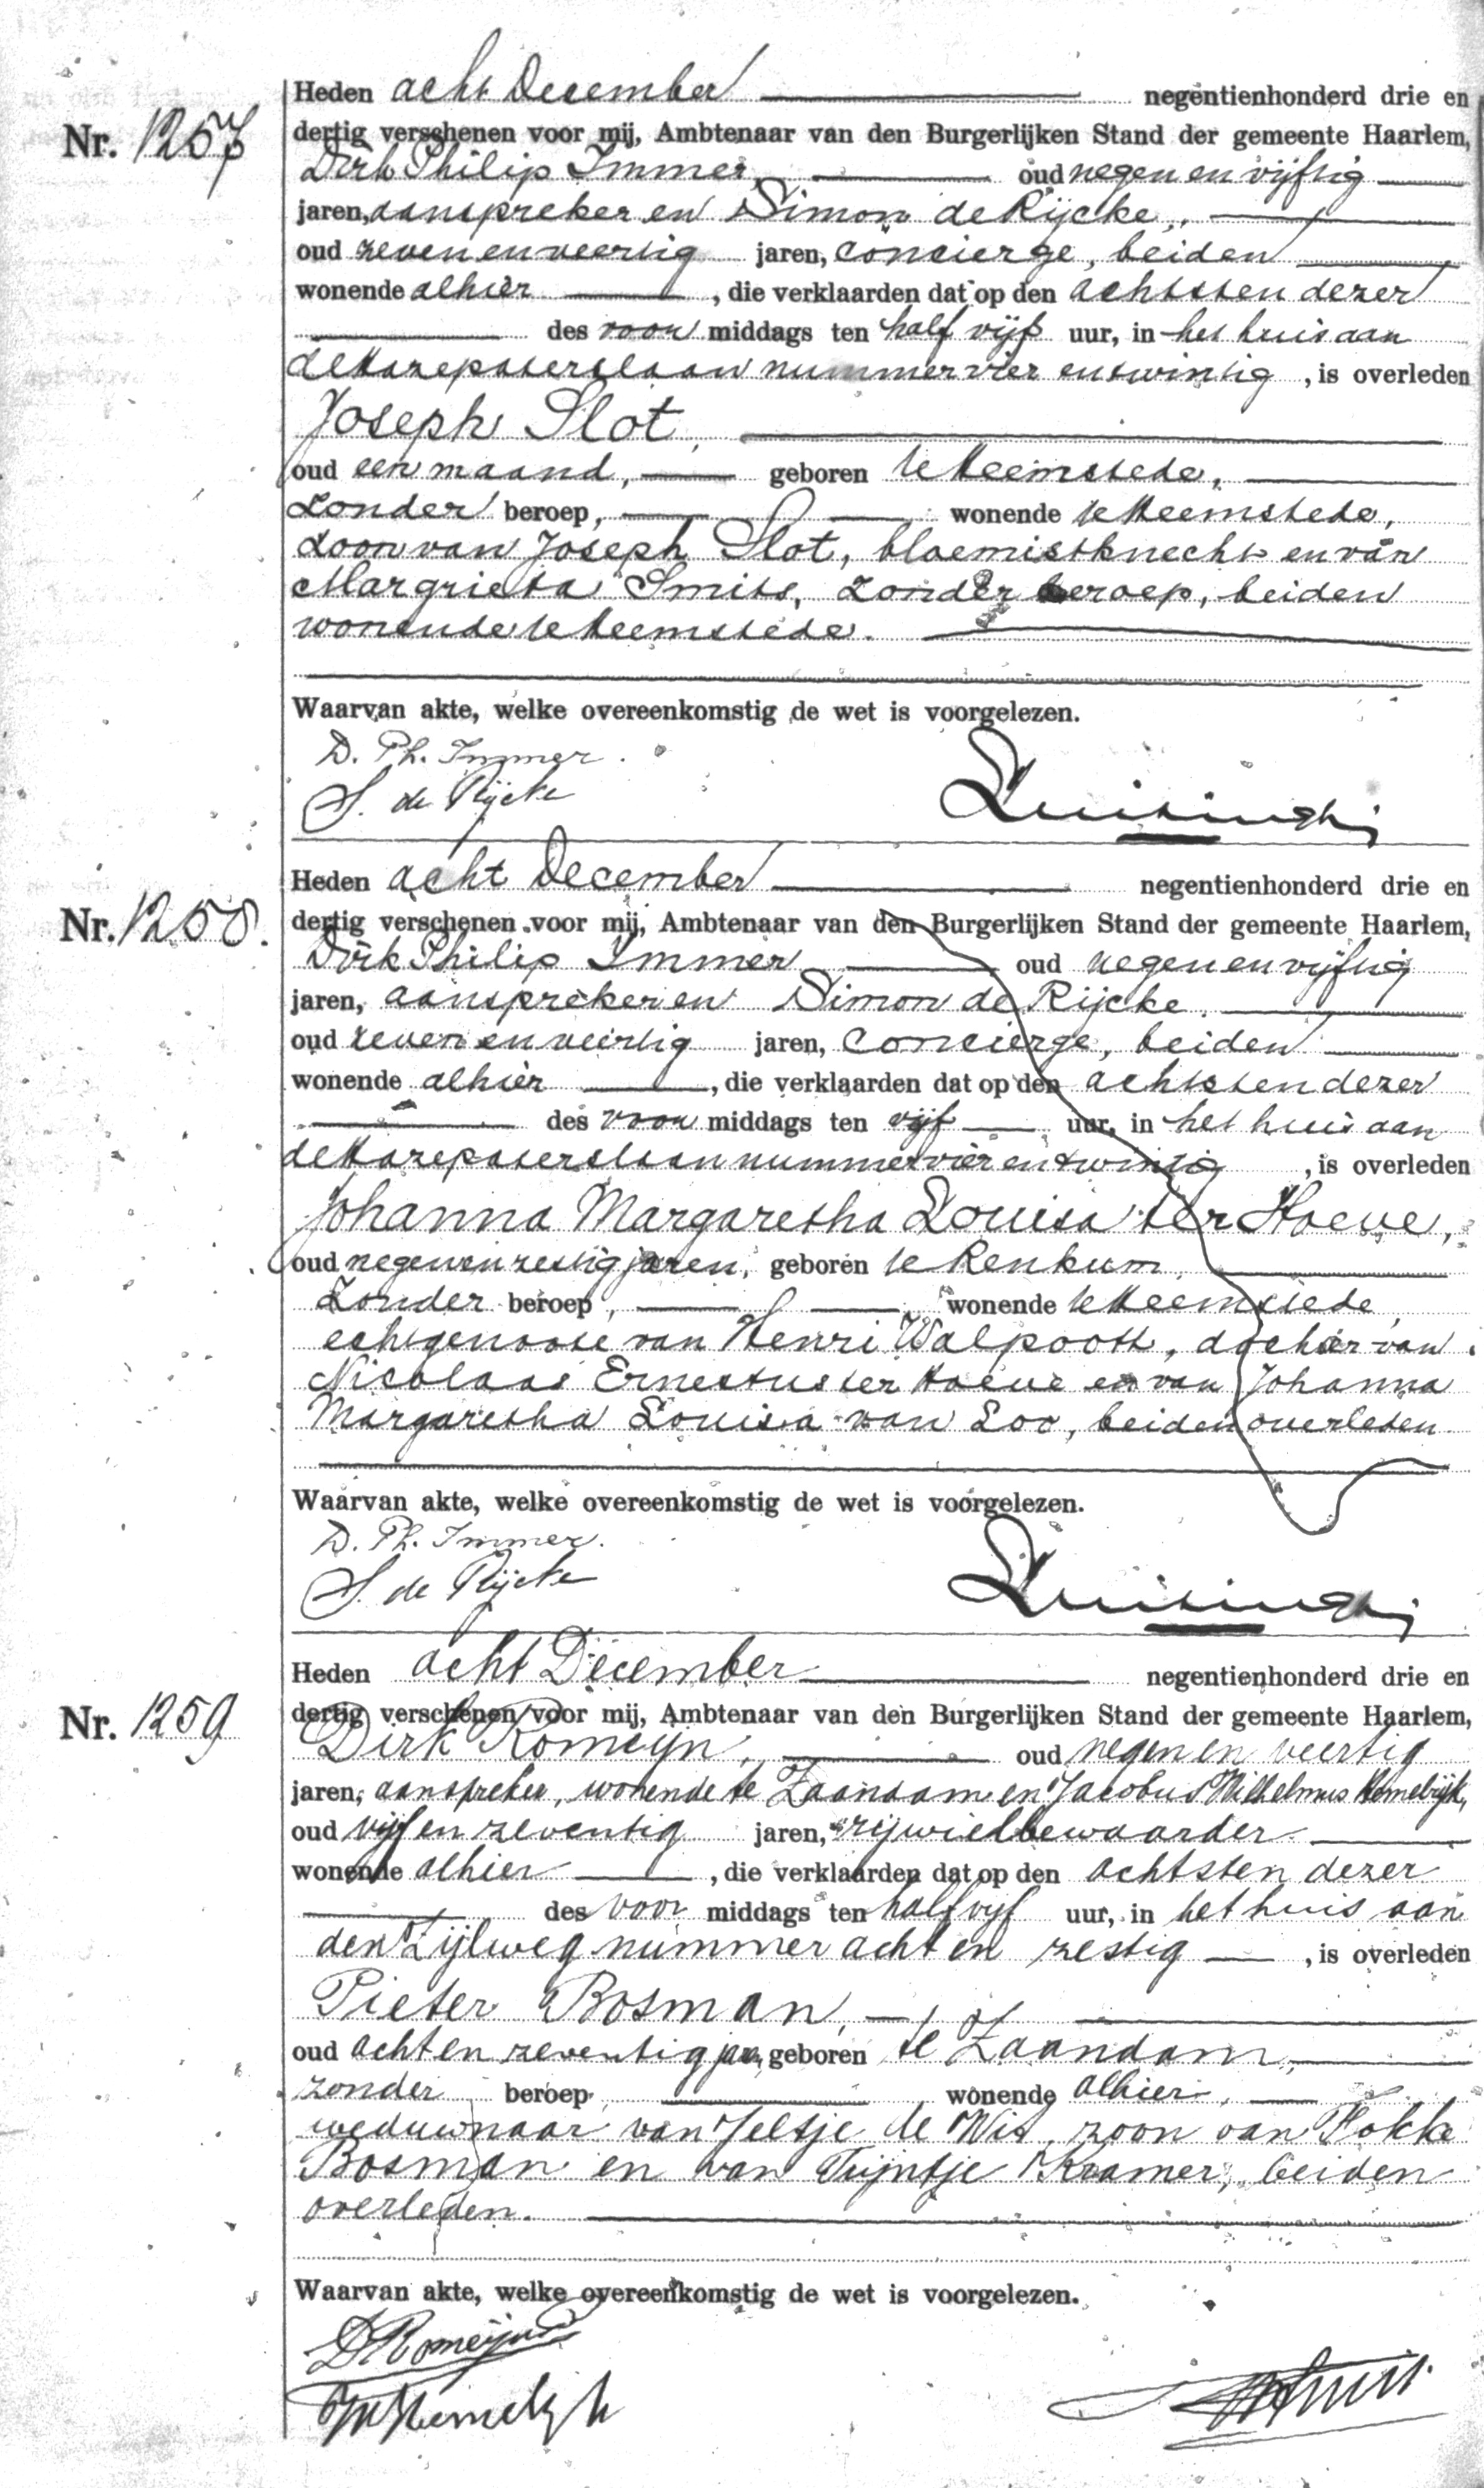 Nr. 1257
Heden acht December negentienhonderd drie en
dertig verschenen voor mij, Ambtenaar van den Burgerlijken Stand der gemeente Haarlem,
Dirk Philip Immer, oud negen en vijftig
jaren, aanspreker en Simon de Rijcke,
oud zeven en veertig jaren, concierge, beiden
wonende alhier, die verklaarden dat op den achtsten dezer
des voor middags ten half vijf uur, in het huis aan
de Hazepaterslaan nummer vier en twintig, is overleden
Joseph Slot,
oud een maand, geboren te Heemstede,
zonder beroep, wonende te Heemstede,
zoon van Joseph Slot, bloemistknecht en van
Margrieta Smits, zonder beroep, beiden
wonende te Heemstede.
Waarvan akte, welke overeenkomstig de wet is voorgelezen.
D. Ph. Immer.
S. de Rijcke
Nr. 1258.
Heden acht December negentienhonderd drie en
dertig verschenen voor mij, Ambtenaar van den Burgerlijken Stand der gemeente Haarlem,
Dirk Philip Immer oud negen en vijftig
jaren, aanspreker en Simon de Rijcke,
oud zeven en veertig jaren, concierge, beiden
wonende alhier, die verklaarden dat op den achtsten dezer
des voor middags ten vijf uur, in het huis aan
de Hazepaterslaan nummer vier en twintig, is overleden
Johanna Margaretha Louisa ter Hoeve,
oud negen en zestig jaren, geboren te Renkum,
zonder beroep, wonende te Heemstede,
echtgenoote van Henri Walpoott, dochter van
Nicolaas Ernestus ter Hoeve en van Johanna
Margaretha Louisa van Loo, beiden overleden
Waarvan akte, welke overeenkomstig de wet is voorgelezen.
D. Ph. Immer.
S. de Rijcke
Nr. 1259
Heden acht December negentienhonderd drie en
dertig verschenen voor mij, Ambtenaar van den Burgerlijken Stand der gemeente Haarlem,
Dirk Romeijn, oud negen en veertig
jaren, aanspreker, wonende te Zaandam en Jacobus Wilhelmus Hemelrijk,
oud vijf en zeventig jaren, rijwielbewaarder
wonende alhier, die verklaarden dat op den achtsten dezer
des voor middags ten half vijf uur, in het huis aan
den Zijlweg nummer acht en zestig, is overleden
Pieter Bosman,
oud acht en zeventig jaar, geboren te Zaandam,
zonder beroep, wonende alhier,
weduwnaar van Jeltje de Wit, zoon van Fokke
Bosman en van Trijntje Kramer, beiden
overleden.
Waarvan akte, welke overeenkomstig de wet is voorgelezen.
D Romeijn
JW Hemelrijk